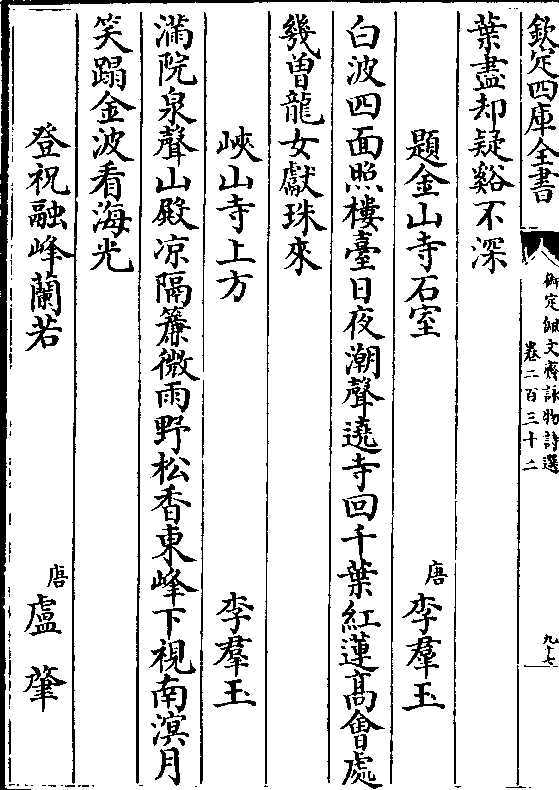 欽定四庫全書
御定佩文齋詠物詩選
卷二百三十二
九十七
葉盡却疑谿不深
題金山寺石室
唐
李羣玉
白波四面照樓臺日夜潮聲遶寺回千葉紅蓮髙會處
幾曽龍女獻珠來
峽山寺上方
李羣玉
滿院泉聲山殿凉隔簾微雨野松香東峰下視南溟月
笑蹋金波看海光
登祝融峰蘭若
唐
盧肇